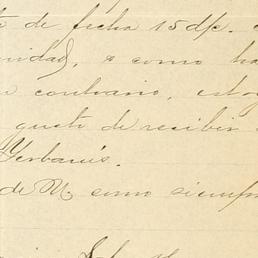 de fecha 15 dpc.
nidad, o como ha
contrario, esto
gusto de recibir
Yerbanís.
de U. como siempr